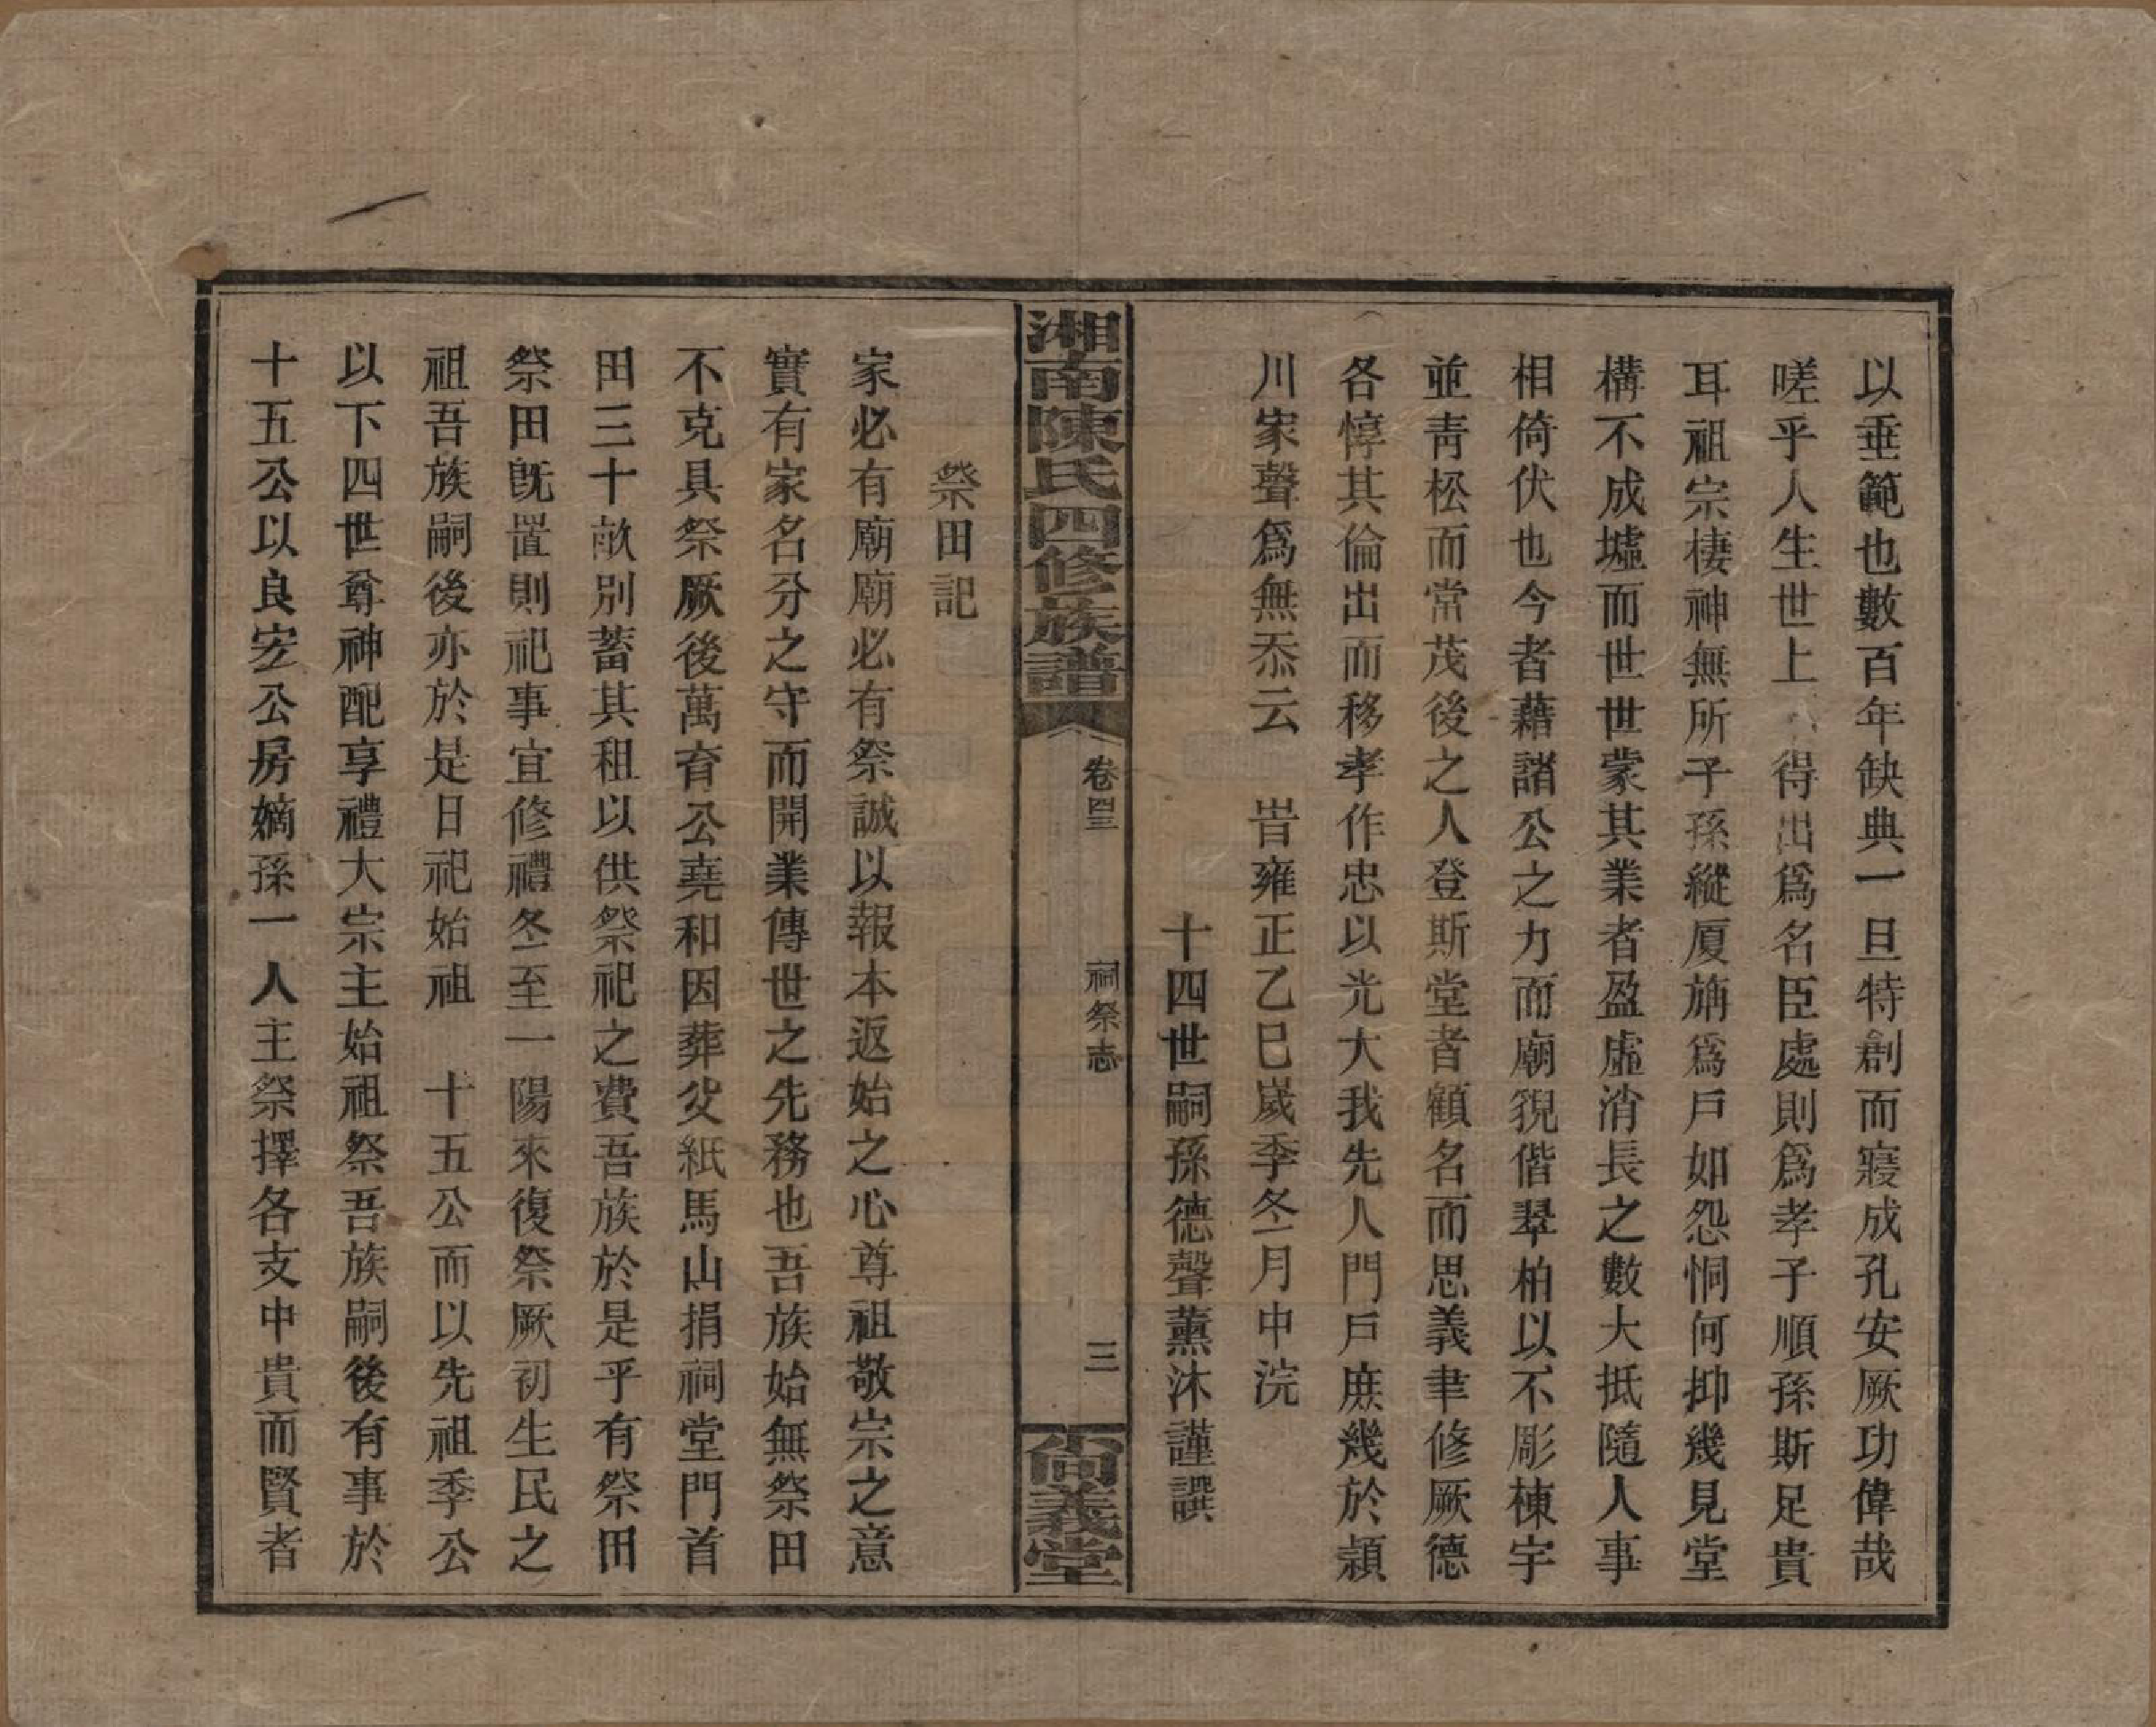 以垂範也數百年缺典一旦特創而寢成孔安厥功偉哉
嗟乎人生世上 得出爲名臣處則爲孝子順孫斯足貴
耳祖宗棲神無所子孫縱厦旃爲戶如怨恫何抑幾見堂
構不成墟而世世蒙其業者盈虛消長之數大抵隨人事
相倚伏也今者藉諸公之力而廟貌偕翠柏以不彫棟宇
並青松而常茂後之人登斯堂者顧名而思義聿修厥德
各惇其倫出而移孝作忠以光大我先人門戶庶幾於潁
川家聲爲無忝云 旹雍正乙巳歲季冬月中浣
十四世嗣孫德聲薰沐謹譔
湘南陳氏四修族譜 卷四三 祠祭志 三 尚義堂
祭田記
家必有廟廟必有祭誠以報本返始之心尊祖敬宗之意
實有家名分之守而開業傳世之先務也吾族始無祭田
不克具祭厥後萬育公堯和因葬父紙馬山捐祠堂門首
田三十畝別蓄其租以供祭祀之費吾族於是乎有祭田
祭田既置則祀事宜修禮冬至一陽來復祭厥初生民之
祖吾族嗣後亦於是日祀始祖 十五公而以先祖季公
以下四世尊神配享禮大宗主始祖祭吾族嗣後有事於
十五公以良宏公房嫡孫一人主祭擇各支中貴而賢者